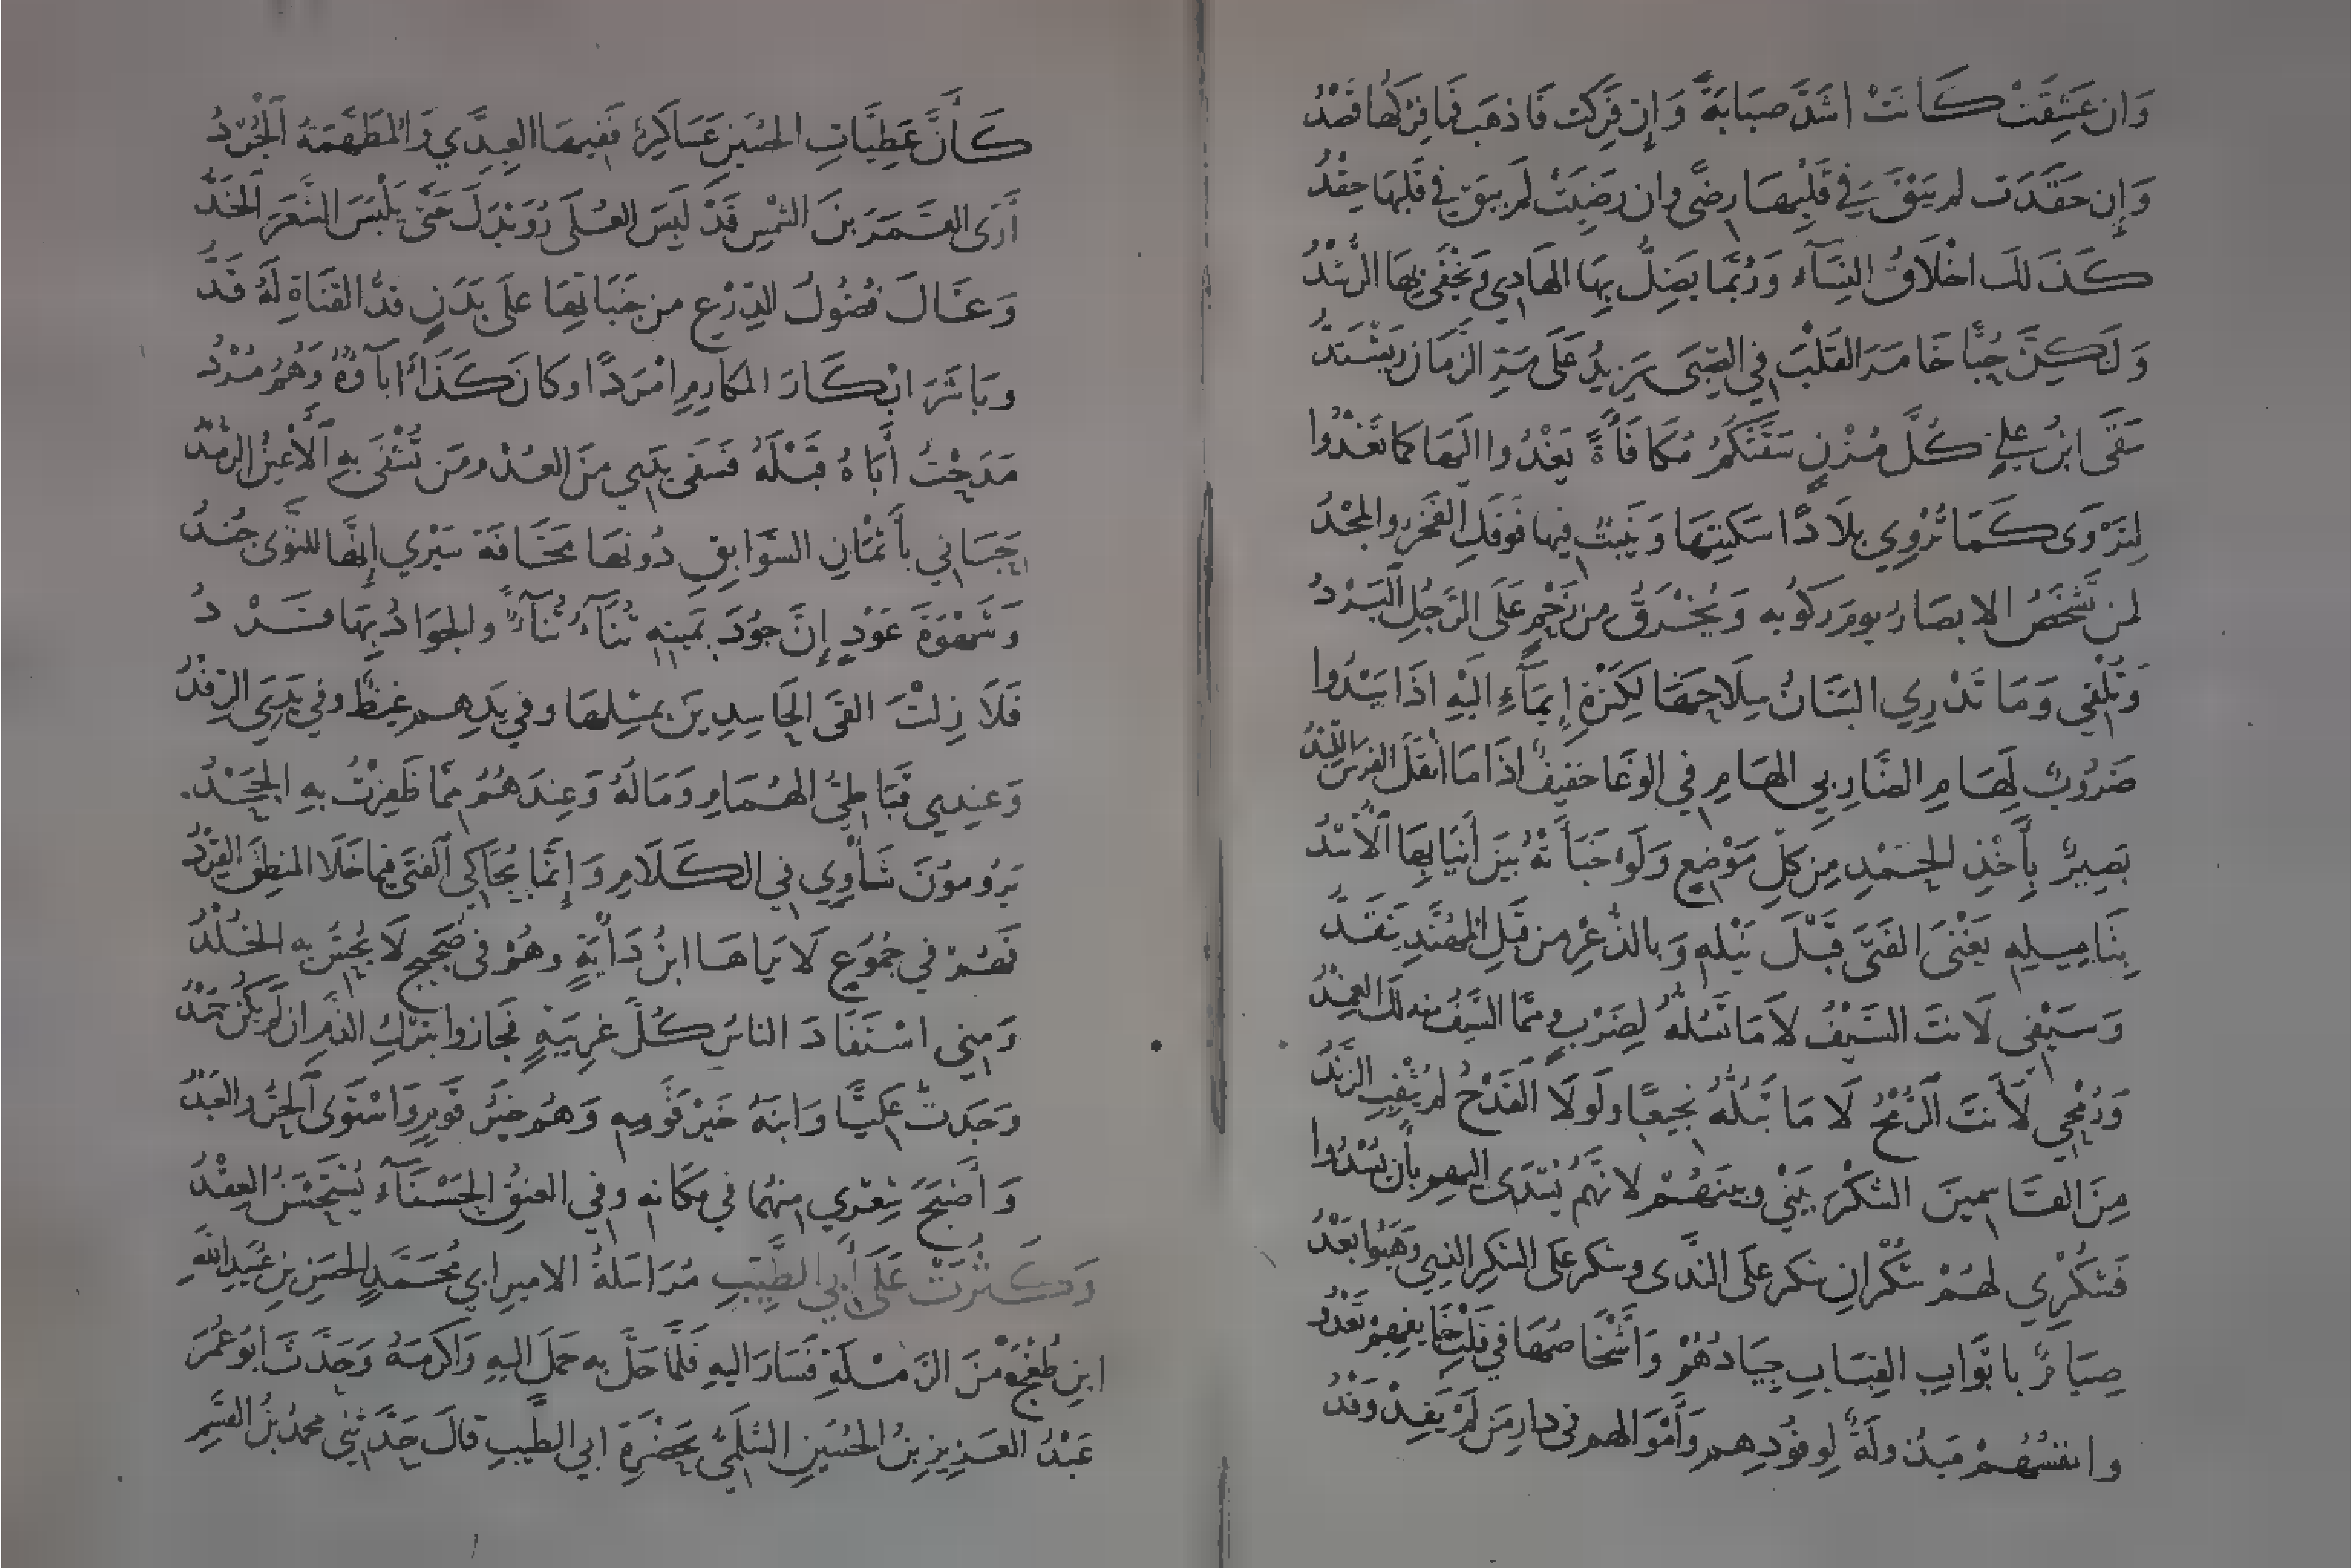 وَان عَشِقَتْ كَانَتْ اشَدَّ صَبَابَةً وَإِن فَرِكَت فَاذهَب فَمَا فِرْكُهَا قَصْدُ
وَإِن حَقَدَت لم يَبْقَ في قَلْبِهَا رِضًى وان رَضِيَتْ لَم يَبقَ في قَلبِهَا حِقْدُ
كَذَلكَ اخْلَاقُ النِسَآء وَرُبَّمَا يَضِلُّ بِهَا الهَادِي وَيَخْفَى بِهَا الرُّشْدُ
وَلَكِنَّ حُبًّا خَامَرَ القَلْبَ فِي الصِّبَى يَزِيدُ عَلَى مَرِّ الزَّمَانِ وَيَشْتَدُّ
سَقَى ابْنُ عَلِيٍّ كُلَّ مُزْنٍ سَقَتْكُمُ مُكَافَأَةً يَغْدُوا الَيهَا كَمَا تَغْدُوا
لِتَرْوَى كَمَا تُرْوِي بِلَادًا سَكَنتِهَا وَيَنبُتُ فِيهَا فَوْقَكِ الفَخْرُ والمَجْدُ
لمن تَشْخَصُ الابصَارُ يوم رَكُوبِه وَيُخْرَقُ من زَحْمٍ عَلَى الرَّجُلِ البُرْدُ
وَتُلْقِي وَمَا تَدْرِي البَنَانُ سِلَاحَهَا لِكَثْرَةِ إِيمَآءٍ الَيْهِ اذَا يَبْدُوا
ضَرُوبٌ لِهَامِ الضَّارِبِي الهَامِ فِي الوَغَا خَفِيفٌ اذَا مَا اثقَلَ الفَرَسَ اللِّبْدُ
بَصِيرٌ بِأَخْذِ الحَمْدِ مِن كلِّ مَوْضِعٍ وَلَوْ خَبَأَتْهُ بَيْنَ أَنيَابِهَا الأُسْدُ
بِتَامِيلِهِ يَغْنَى الفَتَى قَبْلَ نَيْلِهِ وَبالذُّعْرِ من قَبلِ المُهَنَّدِ يَنقَدُّ
وَسَيْفِي لَانتَ السَّيْفُ لَا مَا تَسُلُّهُ لِضَرْبٍ وَمَّا السَّيْفُ منه لَكَ الغِمْدُ
وَرُمْحِي لَأَنتَ الرُّمْحُ لَا مَا تَبُلُّهُ نَجِيعًا وَلَولَا القَدْحُ لم يُثقِبِ الزَّنْدُ
مِنَ القَاسِمِينَ الشُكْرَ بَيْنِي وبينَهُمْ لانَّهُم يُسْدَى اليهم بأَن يُسْدُوا
فَشُكْرِي لَهُمْ شُكْرَانِ شكر عَلَى النَّدَى وشكر عَلَى الشُّكرِ الذِي وَهَبُوا بَعْدُ
صِيَامٌ بابْوَابِ القِبَابِ جِيَادُهُمْ وَأَشْخَاصُهَا فِي قَلْبِ خَايفِهِمْ تَعْدُو
وانفسُهُمْ مَبذُولَةٌ لِوفُودِهِم وَأَمْوَالهم فِي دارِ مَن لَمْ يَفِدْ وَفْدُ
كَأَنَّ عَطِيَّاتِ الحُسَينِ عَسَاكِرٌ فَفِيهَا العِبِدَّي وَالمُطَهَّمَةُ الجُرْدُ
أَرَى القَمَرَ بنَ الشَّمْسِ قَدْ لَبِسَ العُلَى رُوَيْدَكَ حَتَّى يَلْبَسَ الشَّعَرَ الخَدُّ
وَغَالَ فُضُولُ الدِّرْعِ من جَنَبَاتِهَا عَلَى بَدَنٍ قَدُّ القَنَاةِ لَهُ قَدُّ
وبَاشَرَ ابْكَارَ المَكَارِمِ امْرَدًا وكَانَ كَذَا أَبَآؤُهُ وَهُمُ مُرْدُ
مَدَحْتُ أَبَاهُ قَبْلَهُ فَشَفَى يَدِي مِنَ العُدْمِ مَن تُشْفَى بِهِ الأَعْيُنُ الرُّمْدُ
حَبَاني بأَثْمَانِ السَّوَابِقِ دُونهَا مَخَافَةَ سَيْرِي إِنَّهَا للنَّوَى جُندُ
وَشَهْوَةَ عَوْدٍ إِنَّ جُودَ يَمِينِهِ ثُنَآءٌ ثُنَآءٌ والجَوَادُ بِهَا فَرْدُ
فَلَا زِلْتُ القَى الحَاسِدِينَ بمِثْلِهَا وفي يَدِهِم غَيْظٌ وفي يَدِيَ الرِّفْدُ
وَعِندِي قَبَاطِيُّ الهُمَامِ وَمَالُهُ وَعِندَهُمُ مِمَّا ظَفِرْتُ بِهِ الجَحْدُ
يَرُومُونَ شَأْوِي فِي الكَلَامِ وَإِنَّمَا يُحَاكِي الفَتَى فِيمَا خَلَا المَنطِقَ القِرْدُ
فَهُمْ فِي جُمُوعٍ لَا يَرَاهَا ابنُ دَأْيَةٍ وهُمْ فِي ضَجِيجٍ لَا يُحِسُّ بِهِ الخُلْدُ
وَمِنِّي اسْتَفَادَ الناسُ كُلَّ غَرِيبَةٍ فَجَازوا بِتَرْكِ الذَّمِ إِن لَم يَكُن حَمْدُ
وَجَدتُ عَلِيًّا وَابنَهُ خَيْرَ قَومِهِ وَهُم خَيْرُ قَومٍ وَاسْتَوَى الحُرُّ والعَبْدُ
وَأَصْبَحَ شِعْرِي مِنهُمَا فِي مَكَانِهِ وفِي العنُقِ الحَسْنَآءِ يُسْتَحْسَنُ العِقْدُ
وَكَثُرَتْ عَلَى أَبِي الطَّيِّبِ مُرَاسَلَةُ الامير ابي مُحَمَّدٍ الحسن بن عُبَيدِ اللهِ
ابنِ طُغْجٍ مْنَ الرَّمْلَةِ فَسَارَ اليهِ فَلَمَّا حَلَّ بِهِ حَمَلَ اليهِ وَاكرَمَهُ وَحَدَّثَ ابُو عُمَرَ
عَبْدُ العَزِيزِ بنُ الحُسَينِ السُّلَمِيُّ بحَضْرَةِ ابي الطَّيِّبِ قَالَ حَدَّثَنِي محمدُ بنُ القسمِ